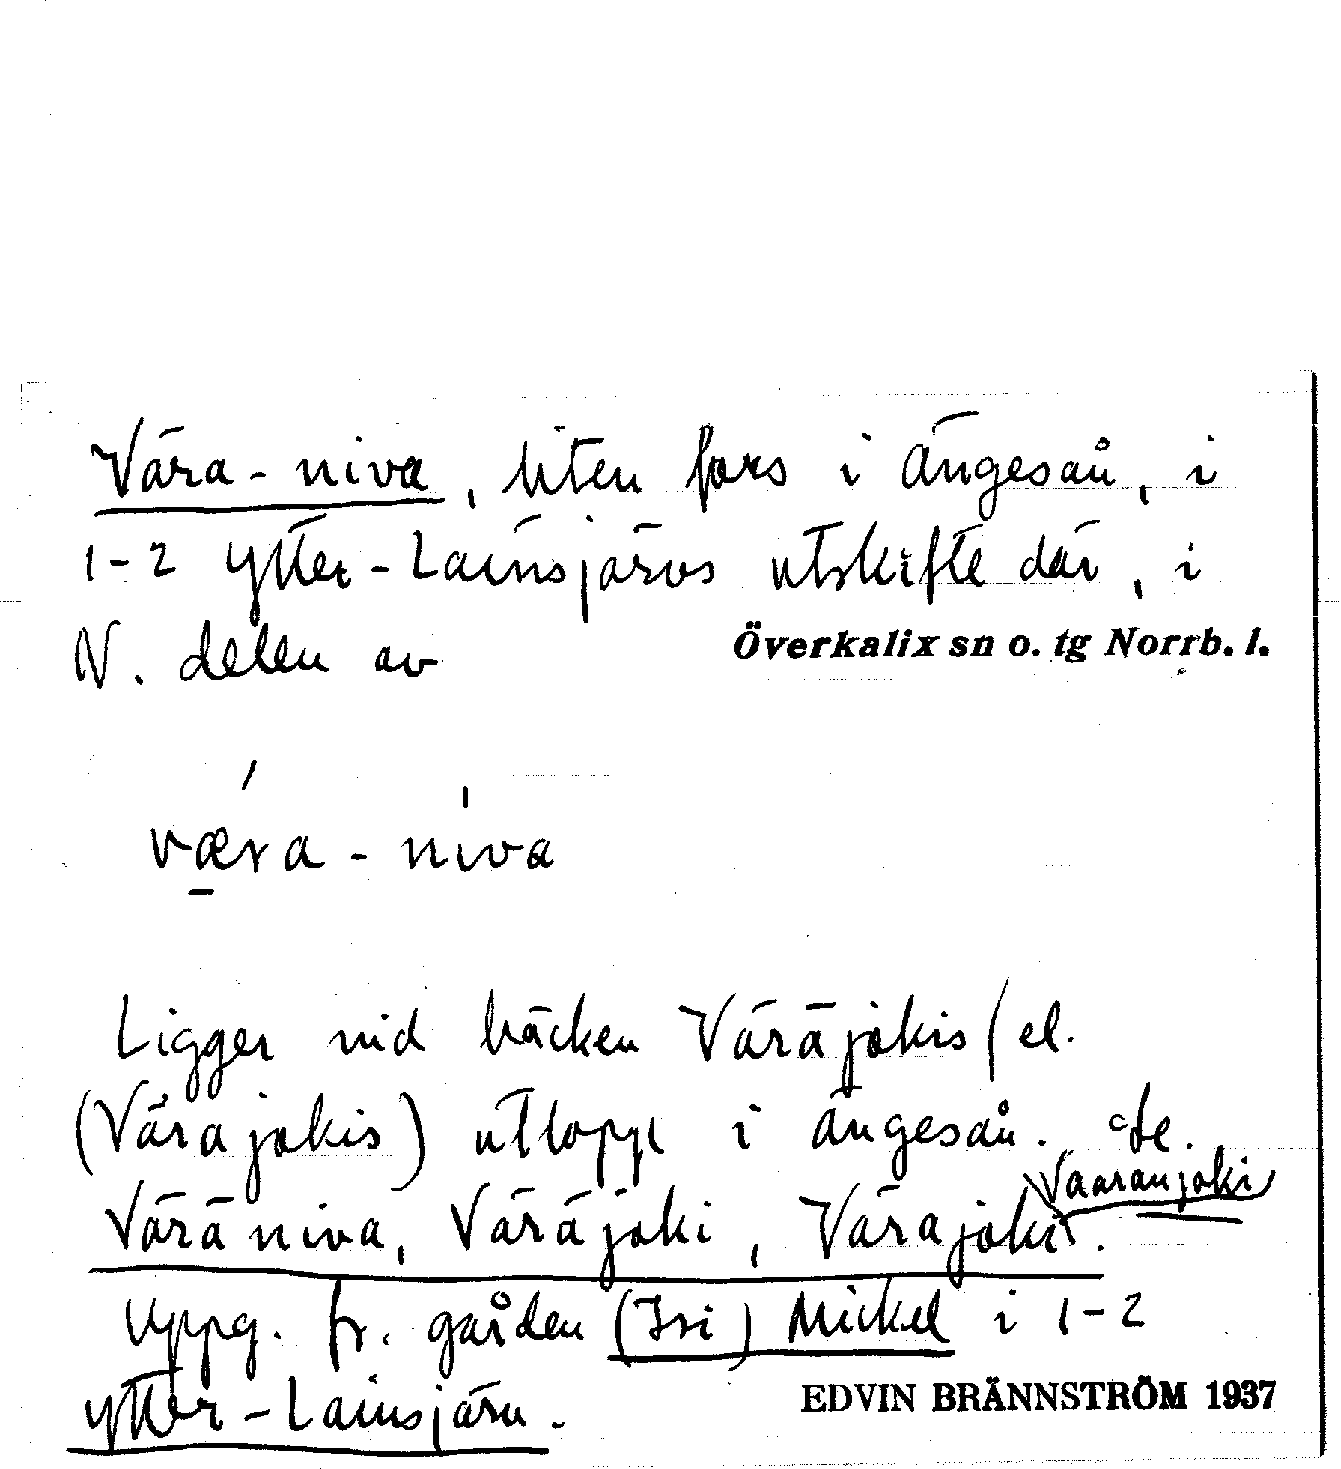 Vära-niva, liten fors i Ängesån, i
1-2 Ytter-Lainsjärvs utskifte där, i
N. delen av
Överkalix sn o. tg Norrb. l.
væra-niva
Ligger vid bäcken Väräjokis (el.
(Värajokis) utlopp i Ängesån. Se.
Vaaranjoki
Väräniva, Väräjoki, Värajoki.
Uppg. fr. gården (Isi) Mickel i 1-2
Ytter-Lainsjärv.
EDVIN BRÄNNSTRÖM 1937